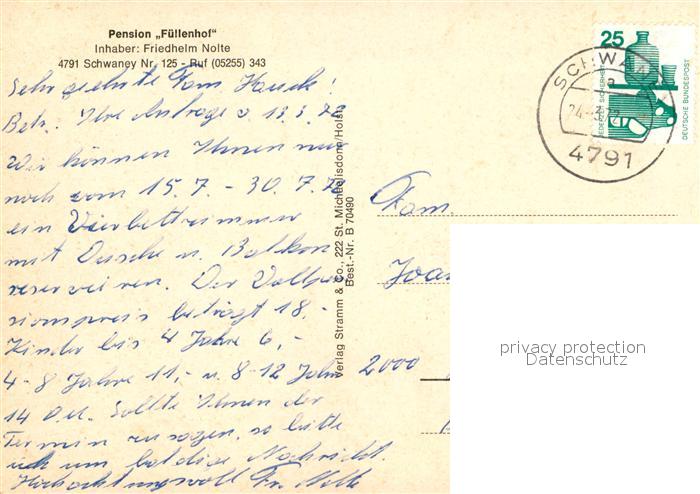 Pension „Füllenhof"
Inhaber: Friedhelm Nolte
4791 Schwaney Nr. 125 - Ruf (05255) 343
Sehr geehrte Fam. Hauck!
Betr.: Ihre Anfrage v. 13.3.72
Wir können Ihnen nur
noch vom 15.7. - 30.7.72
ein Vierbettzimmer
mit Dusche u. Balkon
reservieren. Der Vollpen
sionspreis beträgt 18,-
Kinder bis 4 Jahre 6,-
4-8 Jahre 11,- u. 8-12 Jahre
14 DM. Sollte Ihnen der
Termin zusagen, so bitte
ich um baldige Nachricht.
Hochachtungsvoll Fr. Nolte
Verlag Stramm & Co., 222 St. Michaelisdonn/Holst.
Best.-Nr. B 70490
25
JEDERZEIT SICHERHEIT
DEUTSCHE BUNDESPOST
SCHWANEY
a
4791
Fam.
Joa
2000
privacy protection
Datenschutz